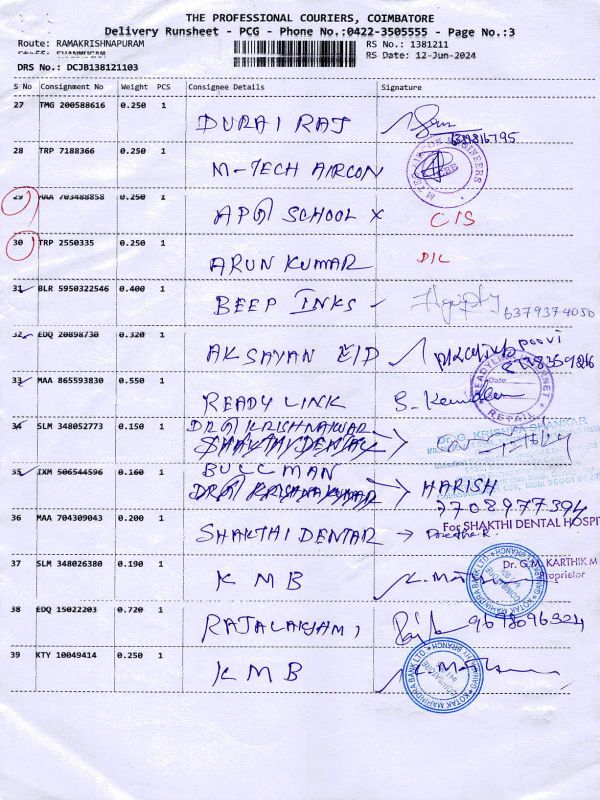 THE PROFESSIONAL COURIERS, COIMBATORE
Delivery Runsheet - PCG - Phone No.:0422-3505555 - Page No.:3
Route: RAMAKRISHNAPURAM RS No.: 1381211
RS Date: 12-Jun-2024
DRS No.: DCJB138121103
S No Consignment No Weight PCS Consignee Details Signature
27 TMG 200588616 0.250 1 DURAI RAJ
28 TRP 7188366 0.250 1 M-TECH AIRCON
29 MAA 703488858 0.250 1 APG SCHOOL X C/S
30 TRP 2550335 0.250 1 ARUN KUMAR D/L
31 BLR 5950322546 0.400 1 BEEP INKS 6379374050
32 EDQ 20898730 0.320 1
33 MAA 865593830 0.550 1 READY LINK
RETAIL
34 SLM 348052773 0.150 1
Dr. G. KRISHNA SHANKAR
35 IXM 506544596 0.160 1 BULL MAN HARISH
7708977394
For SHAKTHI DENTAL HOSPIT
36 MAA 704309043 0.200 1 SHAKTHI DENTAR
Dr. G.M. KARTHIK M
Proprietor
37 SLM 348026380 0.190 1 KMB
KOTAK MAHINDRA BANK LTD.
38 EDQ 15022203 0.720 1
39 KTY 10049414 0.250 1 KMB
KOTAK MAHINDRA BANK LTD.